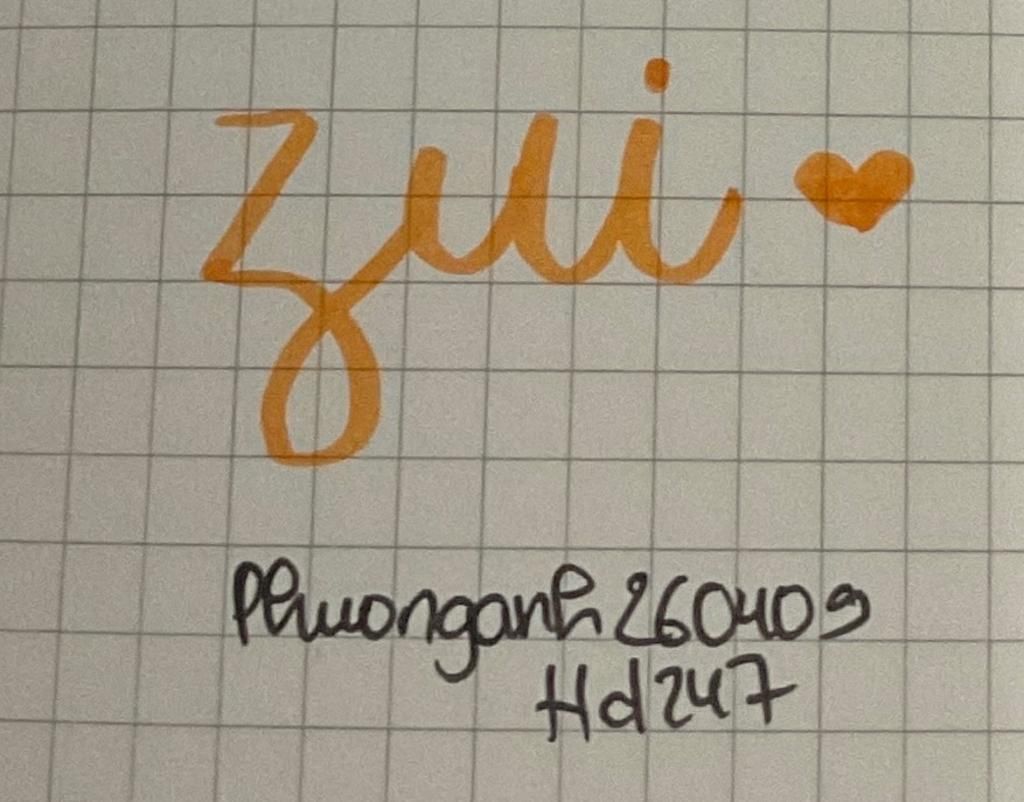 zui
Phuonganh260409
Hd247